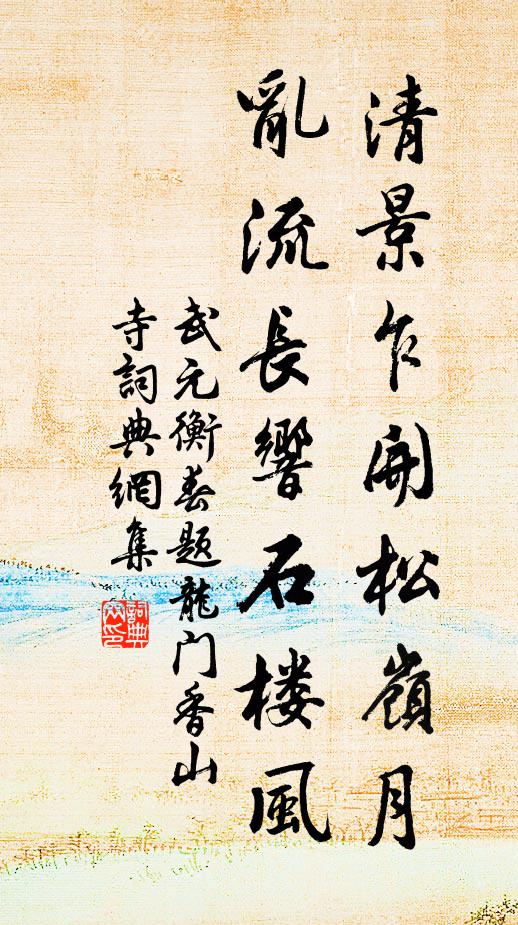 清景乍開松嶺月
亂流長響石楼風
武元衡春题龍门香山
寺詞典網集
詞典网印